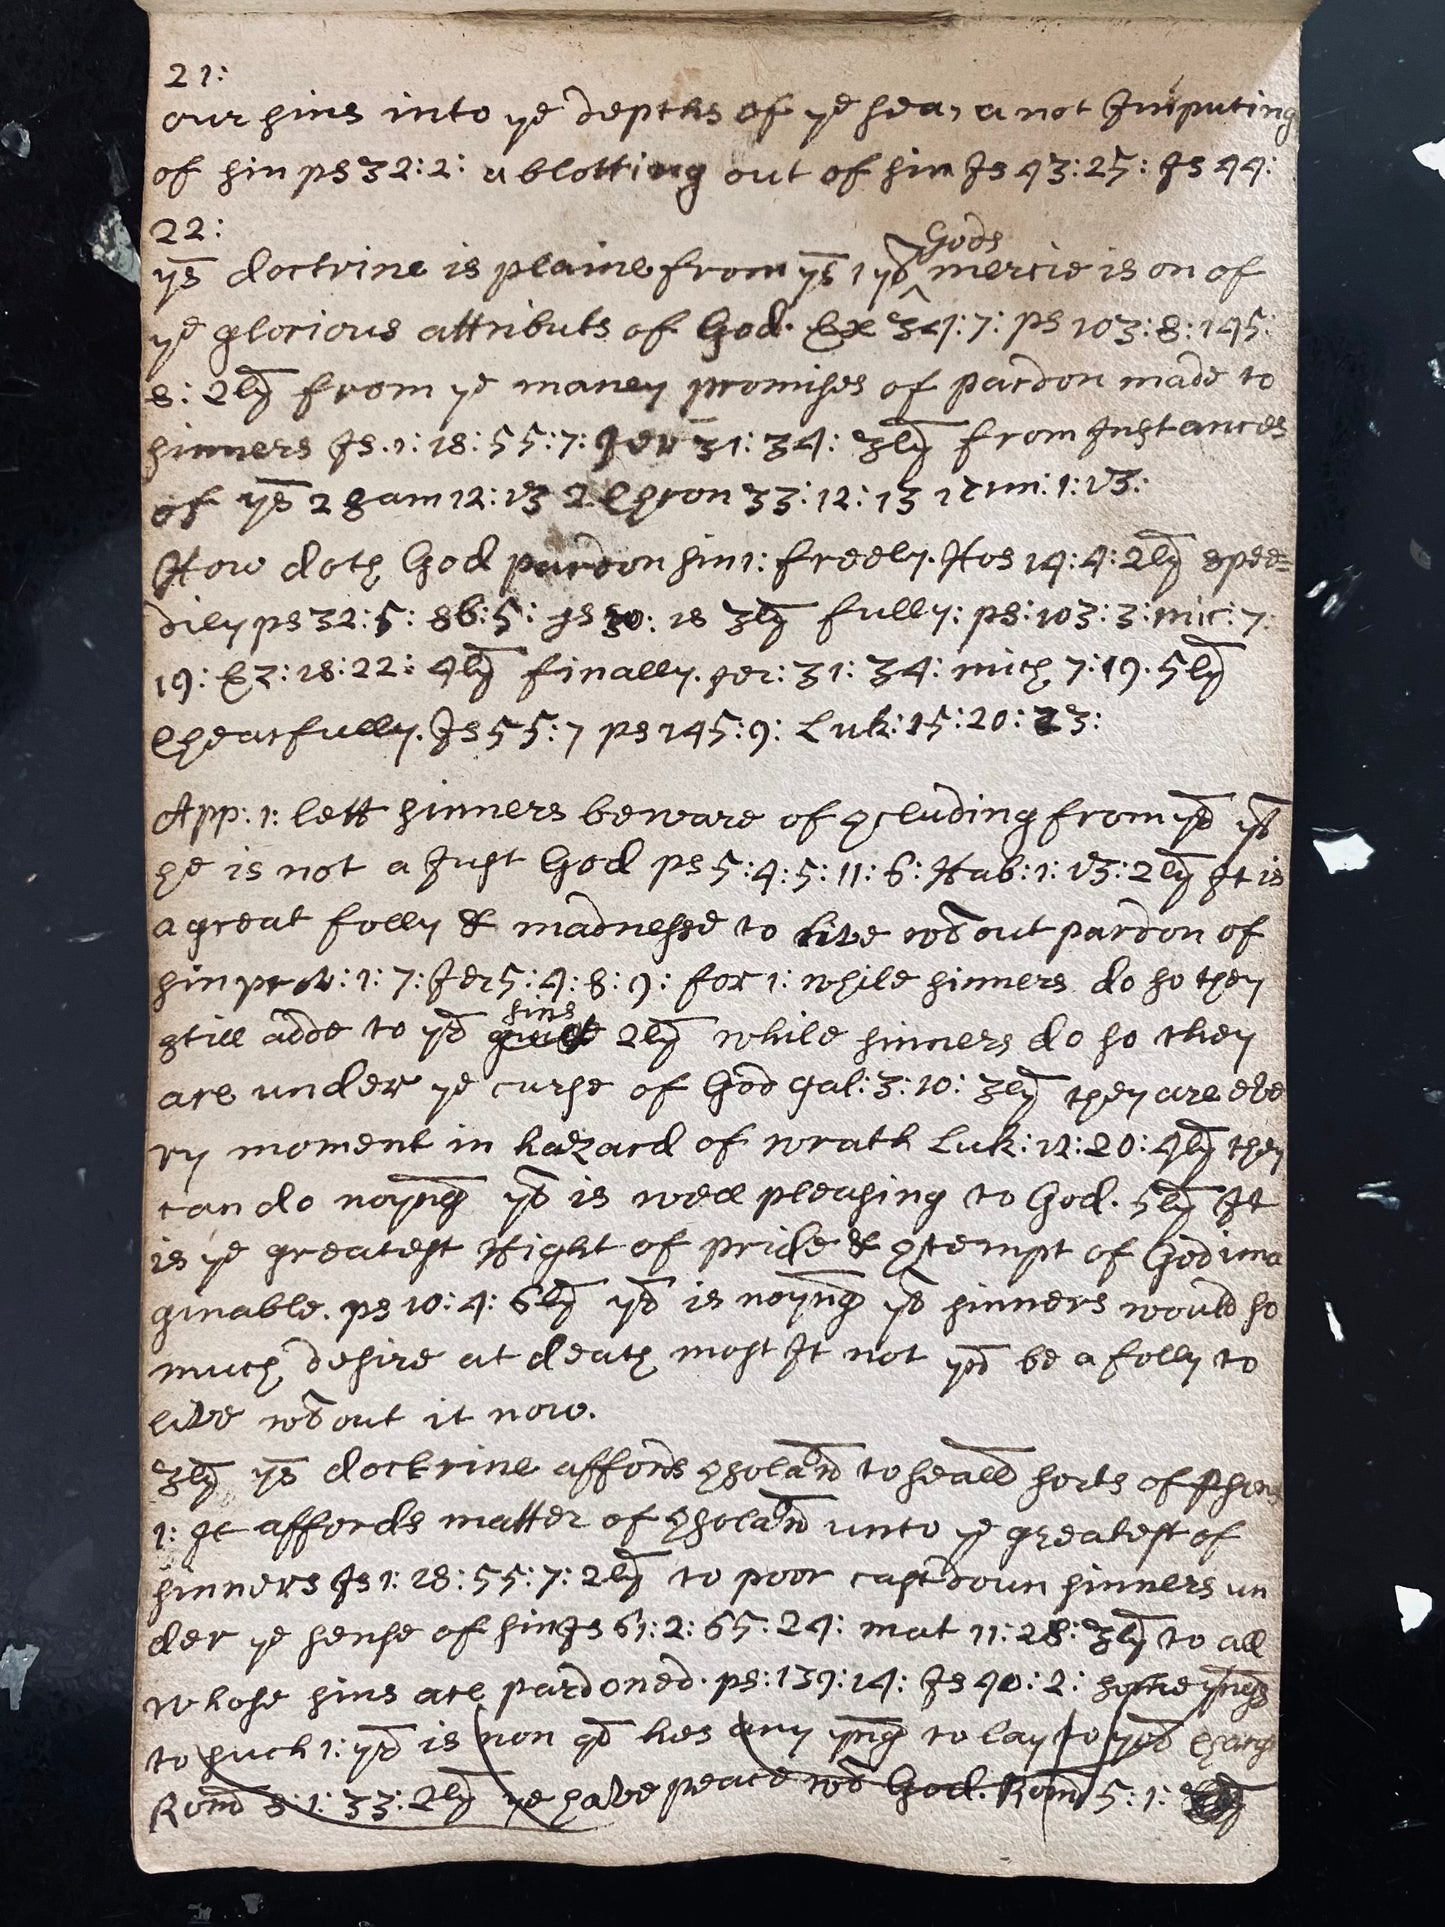 21:
our sins into ye depths of ye sea, a not Imputing
of sin ps 32:2: a blotting out of sin Is 43:25: Is 44:
22:
ys doctrine is plaine from ys 1 yt Gods mercie is on of
ye glorious attributs of God. Ex 34:7: ps 103:8:145:
8: 2ly from ye maney promises of pardon made to
sinners Is.1:18:55:7: Jer 31:34: 3ly from Instances
of ys 2 Sam 12:13 2 Chron 33:12:13 1 Tim:1:13:
How doth God pardon sin 1: freely. Hos 14:4: 2ly spee=
dily ps 32:5: 86:5: Is 30: 18 3ly fully: ps:103:3: mic:7:
19: Ez:18:22: 4ly finally. Jer:31:34: mich 7:19. 5ly
Chearfully. Is 55:7 ps 145:9: Luk:15:20:23:
App:1: lett sinners beware of ccluding from yt yt
he is not a Just God ps 5:4:5:11:6: Hab:1:13: 2ly It is
a great folly & madnesse to live wtout pardon of
sin prov:1:7: Jer 5:4:8:9: for 1: while sinners do so they
still adde to yr sins 2ly while sinners do so they
are under ye curse of God gal:3:10: 3ly they are eve
ry moment in hazard of wrath Luk:12:20: 4ly they
can do noyng yt is well pleasing to God. 5ly It
is ye greatest Hight of pride & ctempt of God ima
ginable. ps 10:4: 6ly yr is noyng yt sinners would so
much desire at death most It not yn be a folly to
live wtout it now.
3ly ys doctrine affords csolatn to severall sorts of psons
1: It affords matter of csolatn unto ye greatest of
sinners Is 1:18:55:7: 2ly to poor castdoun sinners un
der ye sense of sin Is 61:2:65:24: mat 11:28: 3ly to all
whose sins are pardoned. ps:139:14: Is 40:2: yngs
to such 1: yr is non yt hes any yng to lay to yr charge
Rom 8:1:33: 2ly ye have peace wt God. Rom 5:1: